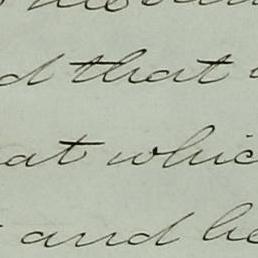 d that
at whic
and he